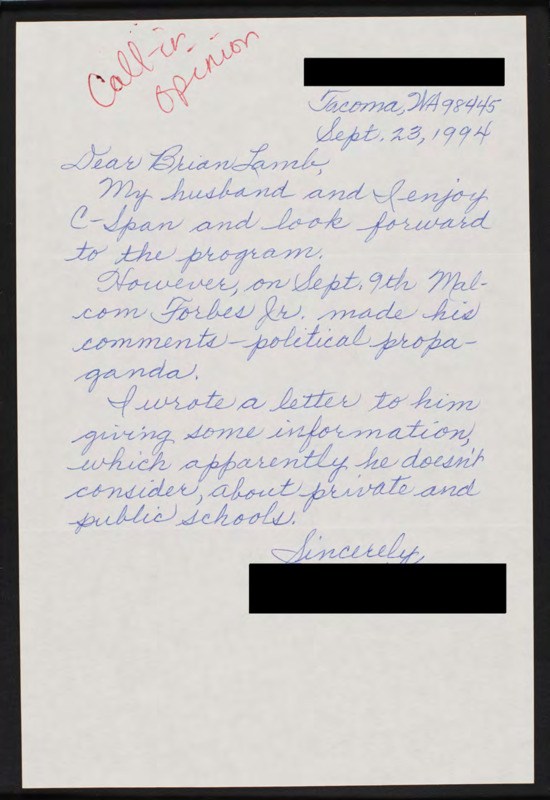 Call-in
opinion
Tacoma, WA 98445
Sept. 23, 1994
Dear Brian Lamb,
My husband and I enjoy
C-Span and look forward
to the program.
However, on Sept. 9th Mal-
com Forbes Jr. made his
comments - political propa-
ganda.
I wrote a letter to him
giving some information,
which apparently he doesn't
consider, about private and
public schools.
Sincerely,